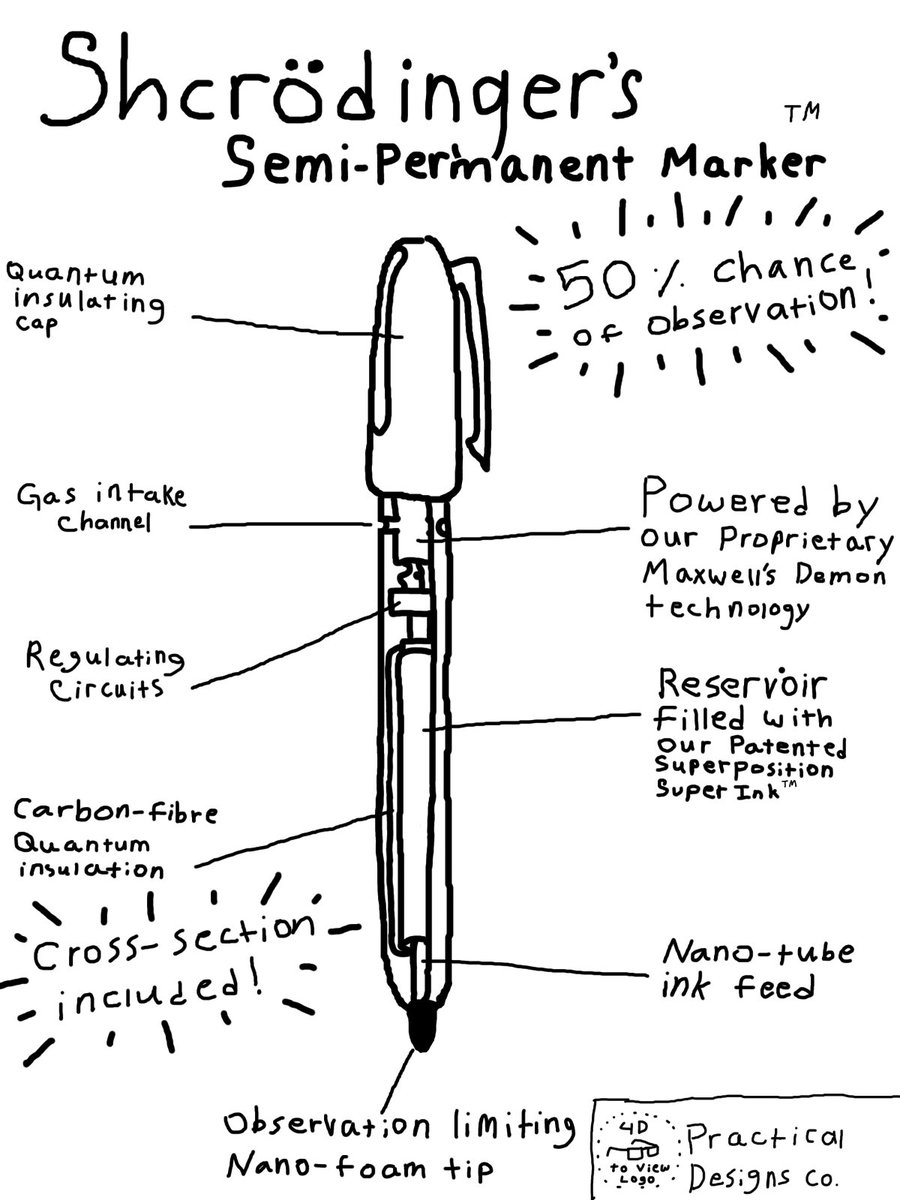 Shcrödinger's
TM
Semi-Permanent Marker
50% chance
of observation!
Quantum
insulating
cap
Gas intake
channel
Powered by
our Proprietary
Maxwell's Demon
technology
Regulating
Circuits
Reservoir
filled with
our Patented
Superposition
Super Ink™
Carbon-fibre
Quantum
insulation
Cross-section
included!
Nano-tube
ink feed
Observation limiting
Nano-foam tip
4D
to view
Logo
Practical
Designs co.